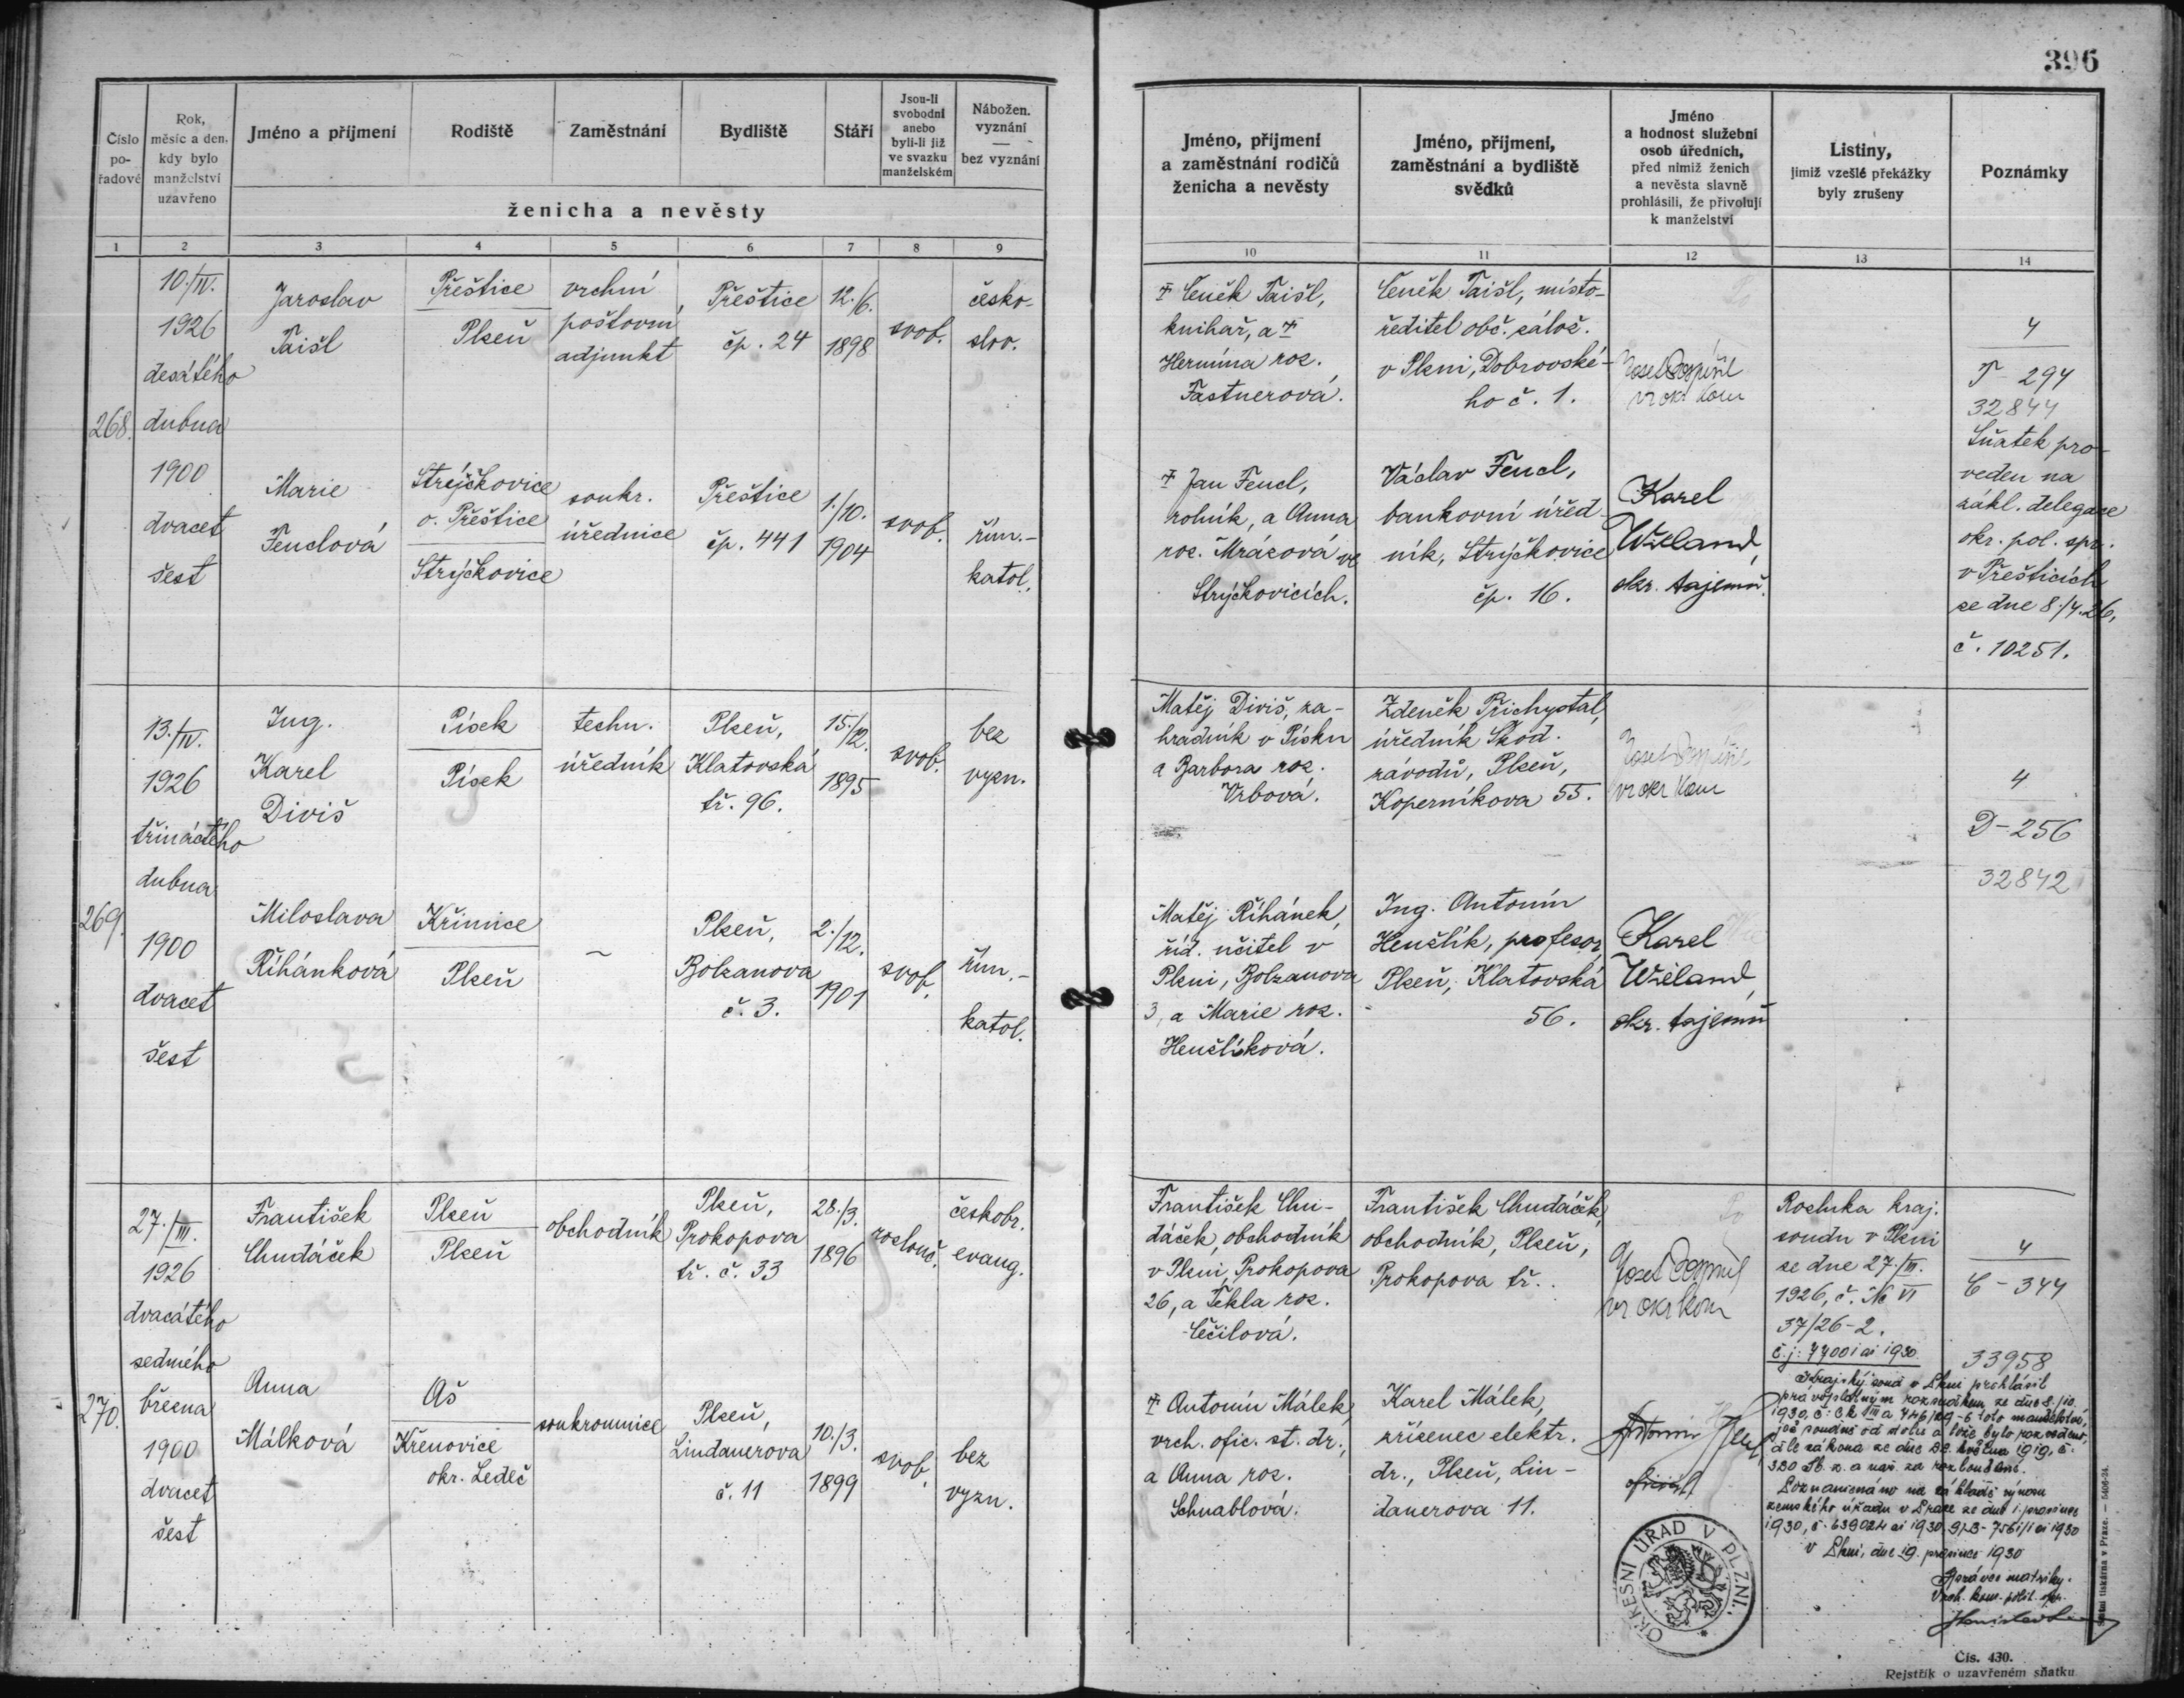 396
Číslo
po-
řadové
Rok,
měsíc a den,
kdy bylo
manželství
uzavřeno
Jméno a příjmení
Rodiště
Zaměstnání
Bydliště
Stáří
Jsou-li
svobodní
anebo
byli-li již
ve svazku
manželském
Nábožen.
vyznání
—
bez vyznání
ženicha a nevěsty
Jméno, příjmení
a zaměstnání rodičů
ženicha a nevěsty
Jméno, příjmení,
zaměstnání a bydliště
svědků
Jméno
a hodnost služební
osob úředních,
před nimiž ženich
a nevěsta slavně
prohlásili, že přivolují
k manželství
Listiny,
jimiž vzešlé překážky
byly zrušeny
Poznámky
1 2 3 4 5 6 7 8 9
10 11 12 13 14
268.
10./IV.
1926
desátého
dubna
1900
dvacet
šest
Jaroslav
Taišl
Přeštice
Plzeň
vrchní
poštovní
adjunkt
Přeštice
čp. 24
12./6.
1898
svob.
česko-
slov.
Marie
Fenclová
Strýčkovice
o. Přeštice
Strýčkovice
soukr.
úřednice
Přeštice
čp. 441
1./10.
1904
svob.
řím.-
katol.
† Čeněk Taišl,
knihař, a †
Hermína roz.
Fastnerová.
Čeněk Taišl, místo-
ředitel obč. zálož.
v Plzni, Dobrovské-
ho č. 1.
Josef Dospíšil
vr okr kom
† Jan Fencl,
rolník, a Anna
roz. Mrázová ve
Strýčkovicích.
Václav Fencl,
bankovní úřed-
ník, Strýčkovice
čp. 16.
Karel
Wieland,
okr. tajemn.
4
T 294
32844
Sňatek pro-
veden na
zákl. delegace
okr. pol. spr.
v Přešticích
ze dne 8./4.26,
č. 10251.
269.
13./IV.
1926
třináctého
dubna
1900
dvacet
šest
Ing.
Karel
Diviš
Písek
Písek
techn.
úředník
Plzeň,
Klatovská
tř. 96.
15./12.
1895
svob.
bez
vyzn.
Miloslava
Říhánková
Křimice
Plzeň
~
Plzeň,
Bolzanova
č. 3.
2./12.
1901
svob.
řím.-
katol.
Matěj Diviš, za-
hradník v Písku
a Barbora roz.
Vrbová.
Zdeněk Přichystal,
úředník Škod.
závodů, Plzeň,
Koperníkova 55.
vr okr kom
Matěj Říhánek,
říd. učitel v
Plzni, Bolzanova
3, a Marie roz.
Henšlíková.
Ing. Antonín
Henšlík, profesor,
Plzeň, Klatovská
56.
Karel
Wieland,
okr. tajemn
4
D-256
32842
270.
27./III.
1926
dvacátého
sedmého
března
1900
dvacet
šest
František
Chudáček
Plzeň
Plzeň
obchodník
Plzeň,
Prokopova
tř. č. 33
28./3.
1896
rozlouč.
českobr.
evang.
Anna
Málková
Aš
Křenovice
okr. Ledeč
soukromnice
Plzeň,
Lindauerova
č. 11
10./3.
1899
svob.
bez
vyzn.
František Chu-
dáček, obchodník
v Plzni, Prokopova
26, a Tekla roz.
Čečilová.
František Chudáček,
obchodník, Plzeň,
Prokopova tř.
vr okr kom
† Antonín Málek,
vrch. ofic. st. dr.,
a Anna roz.
Schnablová.
Karel Málek,
zřízenec elektr.
dr., Plzeň, Lin-
dauerova 11.
Rozluka kraj.
soudu v Plzni
ze dne 27./III.
1926, č. Nc VI
37/26-2.
č.j.: 7700 i ai 1930
Krajský soud v Plzni prohlásil
právoplatným rozsudkem ze dne 8./10.
1930, č: Ck IIIa 446/29-6 toto manželství,
jež soudně od stolu a lože bylo rozvedeno,
dle zákona ze dne 22. května 1919, č.
320 Sb. z. a nař. za rozloučené.
Poznamenáno na základě výnosu
zemského úřadu v Praze ze dne 1. prosince
1930, č. 639024 ai 1930
v Plzni, dne 19. prosince 1930
Správce matriky.
Vrch. kom. polit. spr.
4
C-344
33958
OKRESNÍ ÚŘAD V PLZNI.
Státní tiskárna v Praze. — 5406-24.
Čís. 430.
Rejstřík o uzavřeném sňatku